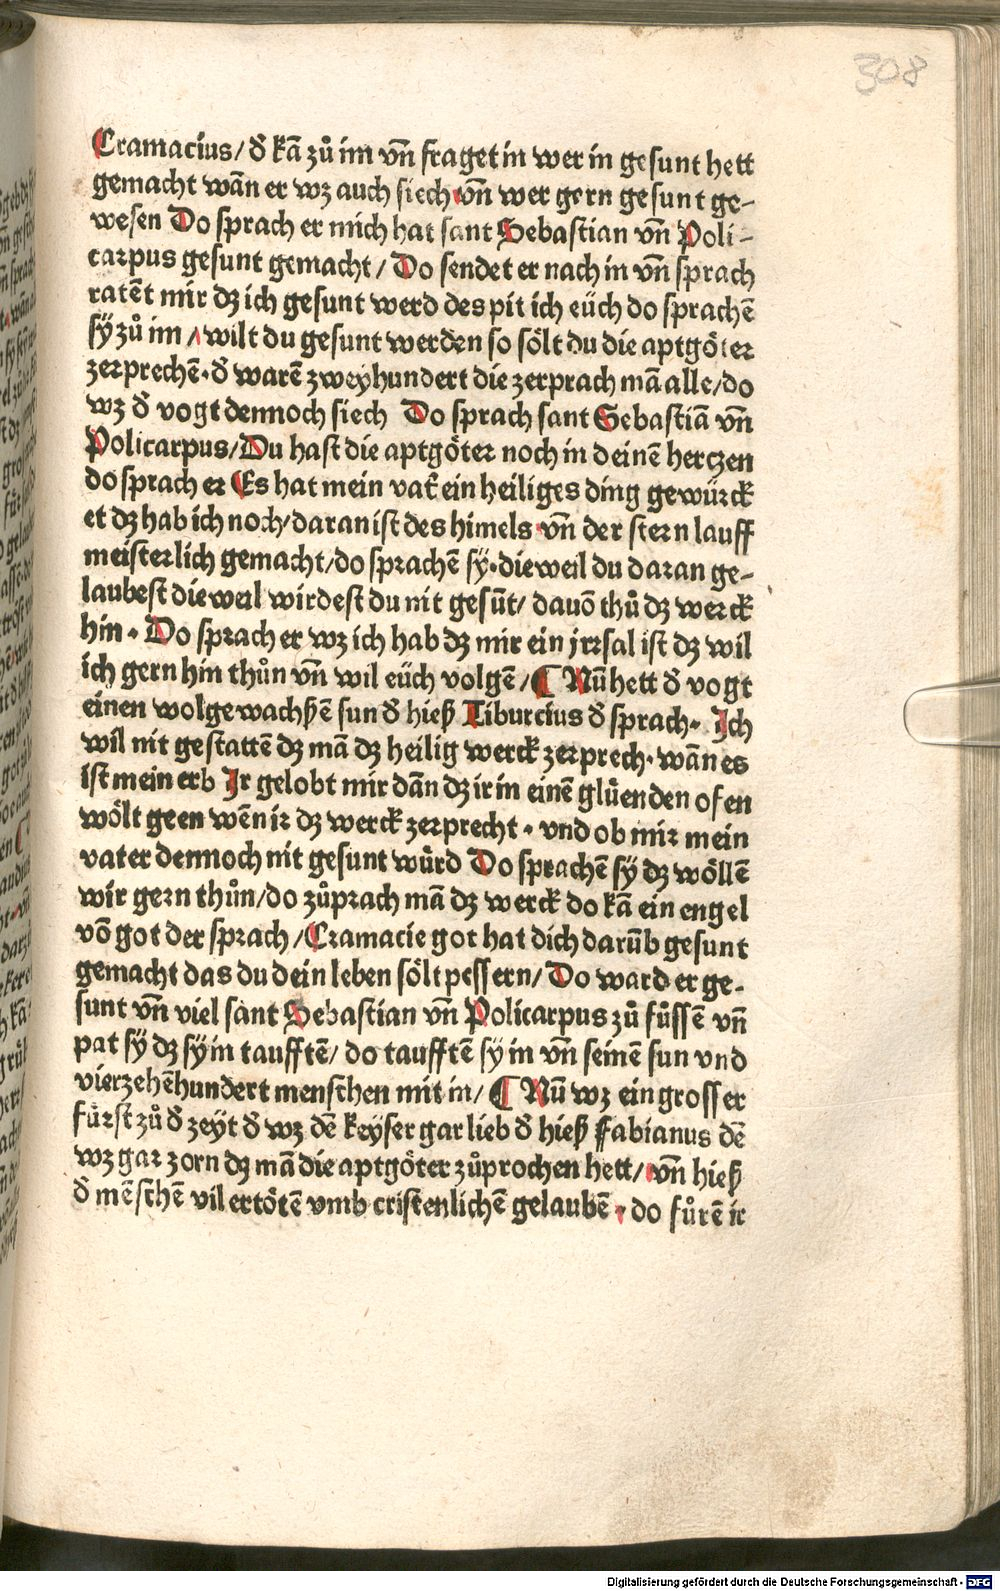 308
Cramacius/ d̄ kā zů im vn̄ fraget in wer in gesunt hett
gemacht wān er wz auch siech vn̄ wer gern gesunt ge-
wesen Do sprach er mich hat sant Sebastian vn̄ Poli-
carpus gesunt gemacht/ Do sendet er nach in vn̄ sprach
ratēt mir dz ich gesunt werd des pit ich eüch do sprachē
sÿ zů im/ wilt du gesunt werden so sölt du die aptgöter
zerprechē. d̄ warē zweyhundert die zerprach mā alle/ do
wz d̄ vogt dennoch siech Do sprach sant Sebastiā vn̄
Policarpus/ Du hast die aptgöter noch in deinē herczen
do sprach er Es hat mein vat̄ ein heiliges ding gewürck
et dz hab ich noch/ daran ist des himels vn̄ der stern lauff
meisterlich gemacht/ do sprachē sÿ. dieweil du daran ge-
laubest dieweil wirdest du nit gesūt/ dauō thů dz werck
hin. Do sprach er wz ich hab dz mir ein jrrsal ist dz wil
ich gern hin thůn vn̄ wil eüch volgē/ ¶ Nū hett d̄ vogt
einen wolgewachßē sun d̄ hieß Tiburcius d̄ sprach. Ich
wil nit gestattē dz mā dz heilig werck zerprech. wān es
ist mein erb Ir gelobt mir dān dz ir in einē glüenden ofen
wölt geen wēn ir dz werck zerprecht. vnd ob mir mein
vater dennoch nit gesunt würd Do sprachē sÿ dz wöllē
wir gern thůn/ do zůprach mā dz werck do kā ein engel
vō got der sprach/ Cramacie got hat dich darūb gesunt
gemacht das du dein leben sölt pessern/ Do ward er ge-
sunt vn̄ viel sant Sebastian vn̄ Policarpus zů füssē vn̄
pat sÿ dz sÿ in taufftē/ do taufftē sÿ in vn̄ seinē sun vnd
vierzehēhundert menschen mit in/ ¶ Nū wz ein grosser
fürst zů d̄ zeyt d̄ wz dē keyser gar lieb d̄ hieß Fabianus dē
wz gar zorn dz mā die aptgöter zůprochen hett/ vn̄ hieß
d̄ mēschē vil ertötē vmb cristenlichē gelaubē. do fůrē ir
Digitalisierung gefördert durch die Deutsche Forschungsgemeinschaft - DFG